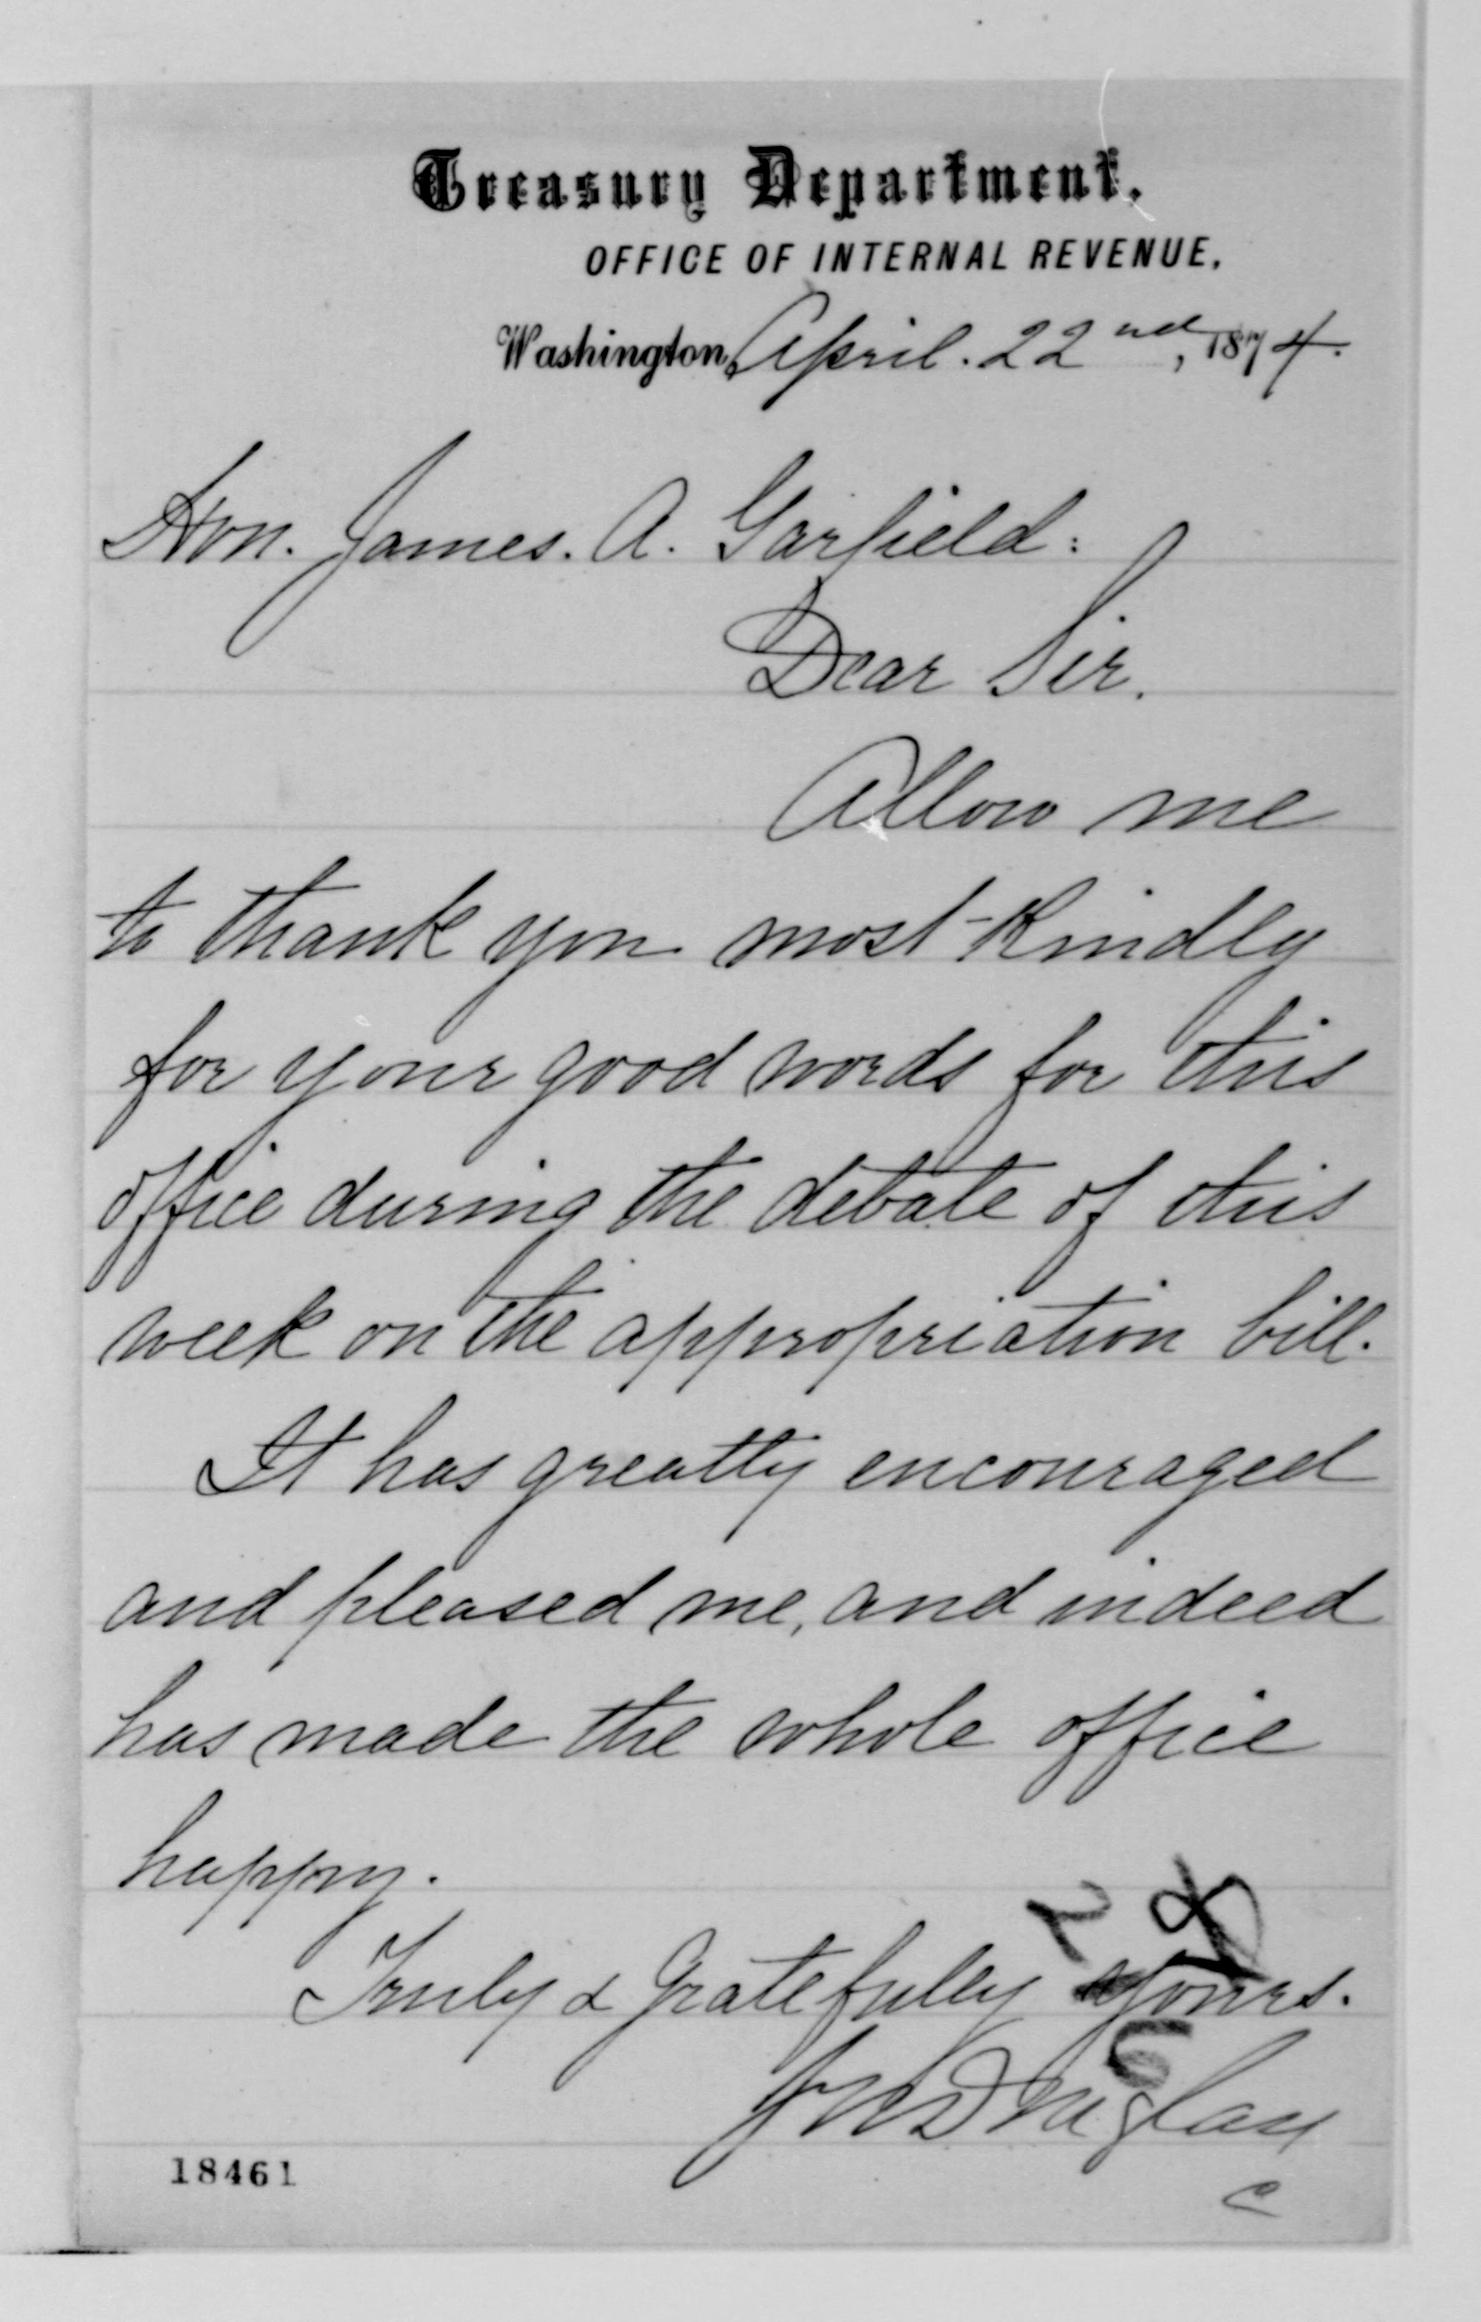 Treasury Department.
OFFICE OF INTERNAL REVENUE.
Washington, April. 22nd, 1874.
Hon. James. A. Garfield:
Dear Sir.
Allow me
to thank you most kindly
for your good words for this
office during the debate of this
week on the appropriation bill.
It has greatly encouraged
and pleased me, and indeed
has made the whole office
happy.
Truly & Gratefully Yours.
J W Douglass
18461